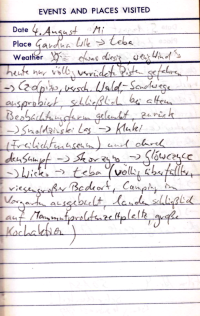 EVENTS AND PLACES VISITED
Date 4. August Mi
Place Gardna Wlk → Łeba
Weather etwas diesig, wenig Wind
heute nur völlig verrückte Piste gefahren,
→ Czołpino, versch. Wald-Sandwege
ausprobiert, schließlich bei altem
Beobachtungsturm gelandet, zurück
→ Smołdziński Las → Kluki
(Freilichtmuseum) und durch
den Sumpf → Skórzyno → Główczyce
→ Wicko → Łeba (völlig überfüllter,
riesengroßer Badeort, Camping im
Vorgarten ausgebucht, landen schließlich
auf Mammutprolotenzeltplatte, große
Kochaktion)